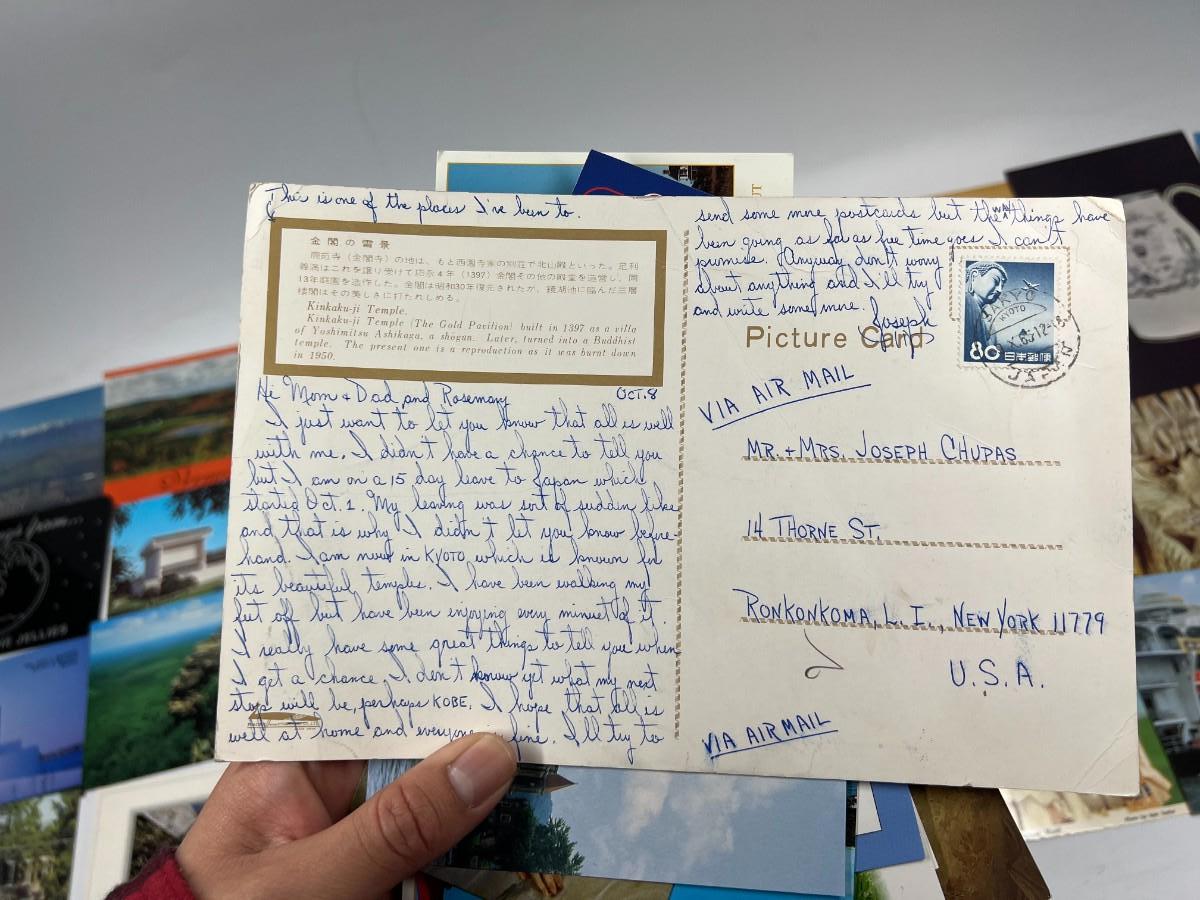 This is one of the places I've been to.
金閣の雪景
鹿苑寺（金閣寺）の地は、もと西園寺家の別荘で北山殿といった。足利
義満はこれを譲り受けて応永4年（1397）金閣その他の殿堂を造営し、同
13年庭園を造作した。金閣は昭和30年復元されたが、鏡湖池に臨んだ三層
楼閣はその美しさに打たれしめる。
Kinkaku-ji Temple.
Kinkaku-ji Temple (The Gold Pavilion) built in 1397 as a villa
of Yoshimitsu Ashikaga, a shōgun. Later, turned into a Buddhist
temple. The present one is a reproduction as it was burnt down
in 1950.
Hi Mom + Dad, and Rosemary OCT. 8
I just want to let you know that all is well
with me. I didn't have a chance to tell you
but I am on a 15 day leave to Japan which
started Oct. 1. My leaving was sort of sudden like
and that is why I didn't let you know before-
hand. I am now in KYOTO which is known for
its beautiful temples. I have been walking my
feet off but have been enjoying every minuet of it.
I really have some great things to tell you when
I get a chance. I don't know yet what my next
stop will be, perhaps KOBE. I hope that all is
well at home and everyone is fine. I'll try to
send some more postcards but the way things have
been going as far as free time goes I can't
promise. Anyway don't worry
about anything and I'll try
and write some more.
Joseph
Picture Card
KYOTO
JAPAN
80 日本郵便
VIA AIR MAIL
MR. + MRS. JOSEPH CHUPAS
14 THORNE ST.
RONKONKOMA, L. I., NEW YORK 11779
U.S.A.
VIA AIRMAIL